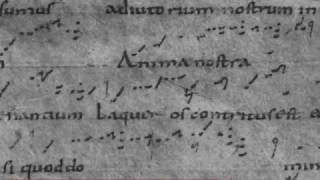 sumus adiutorium nostrum in
Anima nostra
nantium Laqueos contritus est e
si quod do